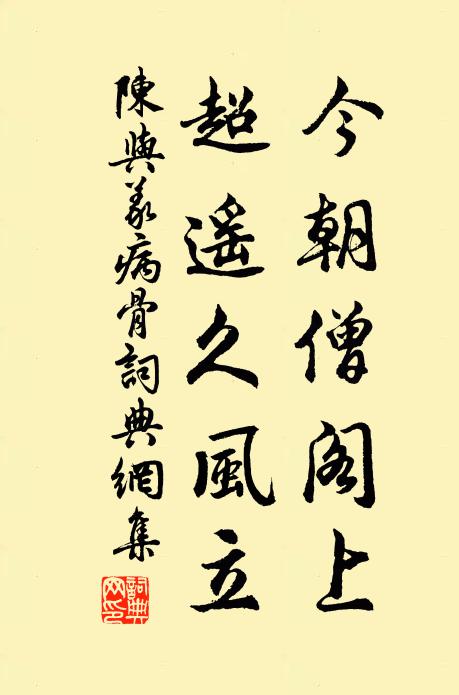 今朝僧閣上
超遙久風立
陳與義病骨詞典網集
詞典网印